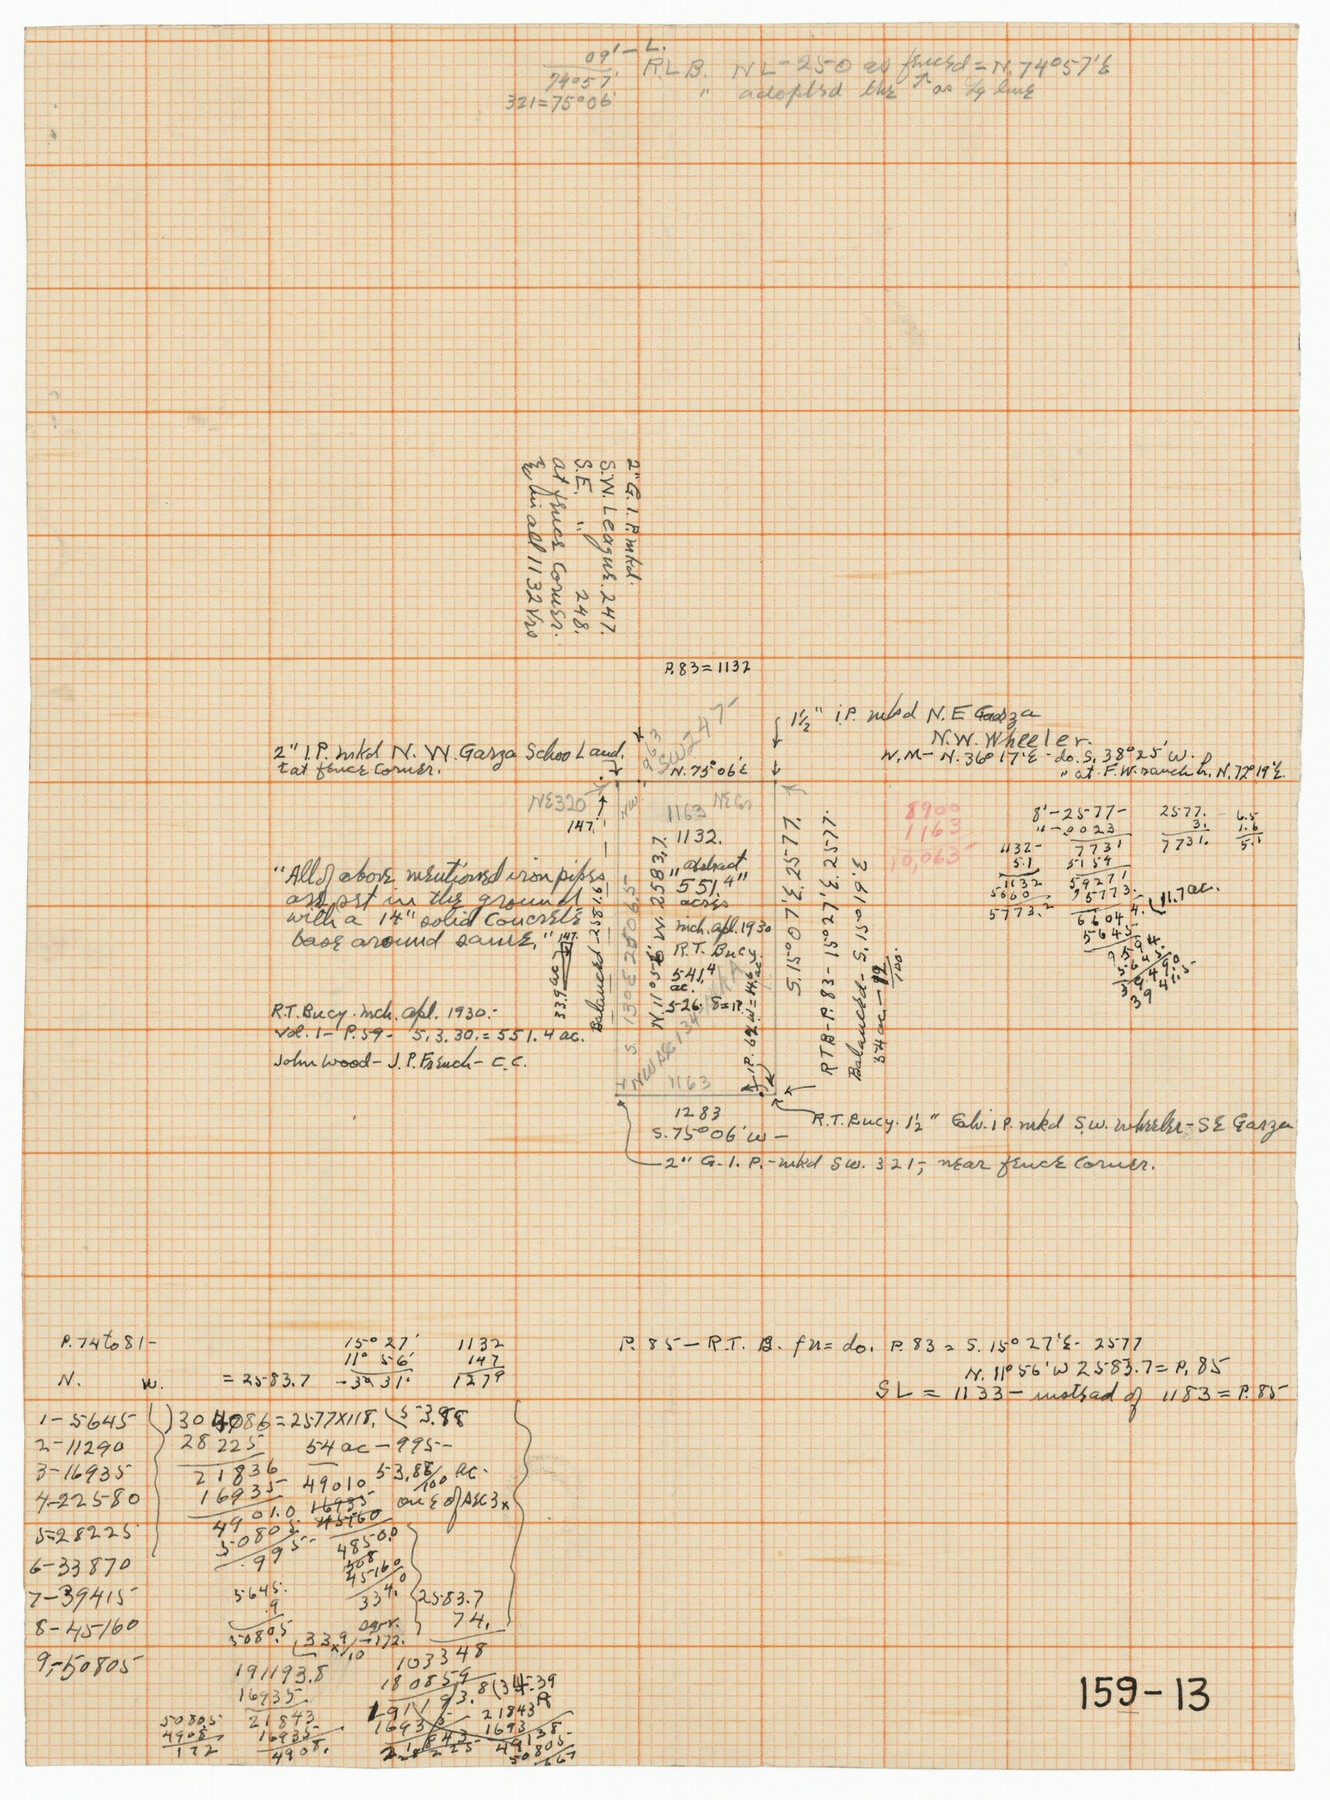 09' - L.
74°57'
321=75°06'
R.L.B. NL-250 as fenced = N. 74°57'E
" adopted the ↑ as line
2" G. I. P. mkd.
S.W. League. 247.
S.E. " 248.
at fence Corner.
all 1132 Vrs
P. 83=1132
1½" I.P. mkd N. E Garza
N.W. Wheeler.
W.M- N. 36°17'E - do. S. 38°25' W.
" at F.W. ranch h. N. 72°19'E.
2" I.P. mkd N. W. Garza School Land.
at fence Corner.
x
963
SW247
N. 75°06'E
NE320
147.
N.W.
1163
NE Gs
1132.
"abstract
"551.4"
acres
mch. apl. 1930
R.T. Bucy
541.4
ac.
5-26. 8=17.
"All of above mentioned iron pipes
are set in the ground
with a 14" solid Concrete
base around same."
147.
33.9 ac
Balanced - 2581.6
S. 13°E 2506.5
N. 11°56' W. 2583.7.
S. 15°07'E. 2577.
RTB-P. 83- 15°27'E. 2577.
Balanced- S. 15°19'E
54 ac.- 12/100.
8900
1163
10,063
8'-2577-
"-.0023
7731
5154
59271
2577.
3.
7731.
6.5
1.6
5.1
1132-
5.1
1132
5660
5773.2
5773.
66044.
11.7 ac.
5645
9594.
5645
39490
3941.5
R.T. Bucy. mch. apl. 1930.-
Vol. 1- P. 59- 5. 3. 30. = 551. 4 ac.
John Wood- J. P. French- C. C.
1163
1283
S. 75°06' W -
R.T. Bucy. 1½" Galv. I P. mkd S.W. Wheeler- SE Garza
2" G. I. P.- mkd SW. 321; near fence Corner.
P. 74 to 81-
15° 27'
11° 56'
- 3° 31'
1132
147
1279
N. W. = 2583.7
P. 85- R.T. B. fn= do. P. 83 = S. 15°27'E- 2577
N. 11°56'W 2583.7= P. 85
SL = 1133- instead of 1183= P. 85
1-5645
2-11290
3-16935
4-22580
5-28225
6-33870
7-39415
8-45160
9-50805
304086=2577X118. 53.88
28225
21836
16935
49010
50805
.995-
54 ac - 995-
53.88/100 ac.
on E of Sec 3
49010
16935
45160
48500
508
45160
3340
5645.
.9
5080.5
33.9/10
over.
-172.
2583.7
74.
103348
180859
191193.8
34.39
191193.8
16935
21843
16935
4908.
50805
4908
172
16935
21843
21843
1693
49138
50805
667
159-13